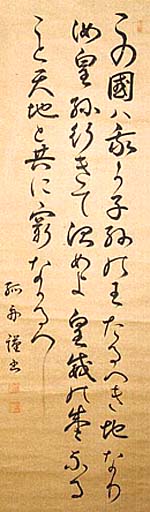 この國ハ我か子孫の王たるへき地なり
汝皇孫行きて治めよ皇威の
こと天地と共に窮なかるへし
孤舟謹書